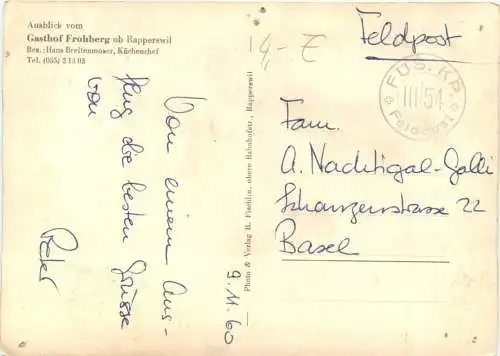 Ausblick vom
Gasthof Frohberg ob Rapperswil
Bes.: Hans Breitenmoser, Küchenchef
Tel. (055) 2 13 02
14,- E
Feldpost
FÜS. KP.
III/54
Feldpost
Von einem Aus-
flug die besten Grüsse
von
Peter
9.11.60
Photo & Verlag B. Fischlin, obere Bahnhofstr., Rapperswil
Fam.
A. Nachtigal-Galli
Schanzenstrasse 22
Basel